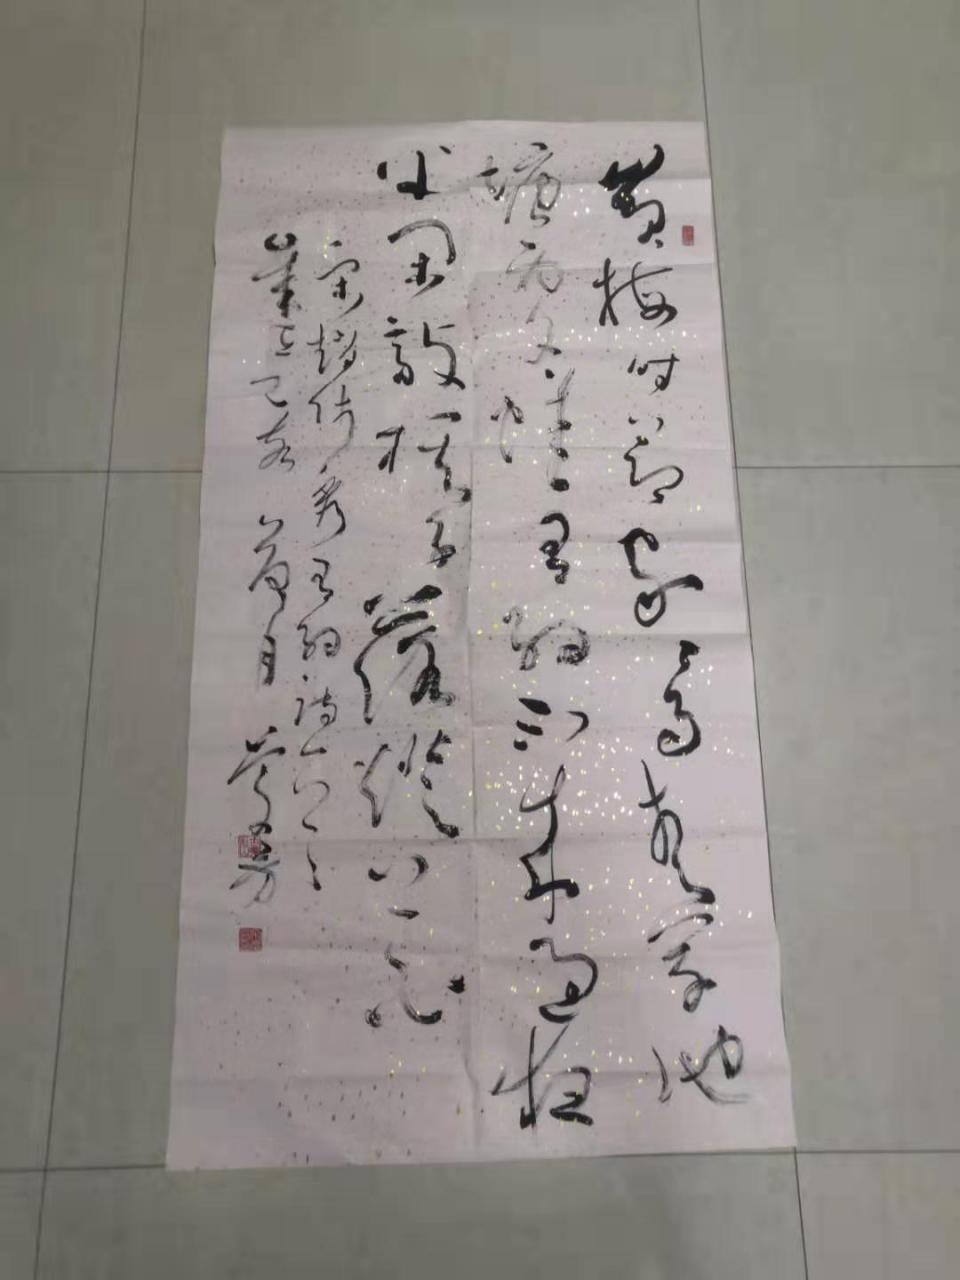 黄梅时节家家雨青草池
塘处处蛙有约不来过夜
半闲敲棋子落灯花
宋赵师秀有约诗一首
岁在己亥
月
芳